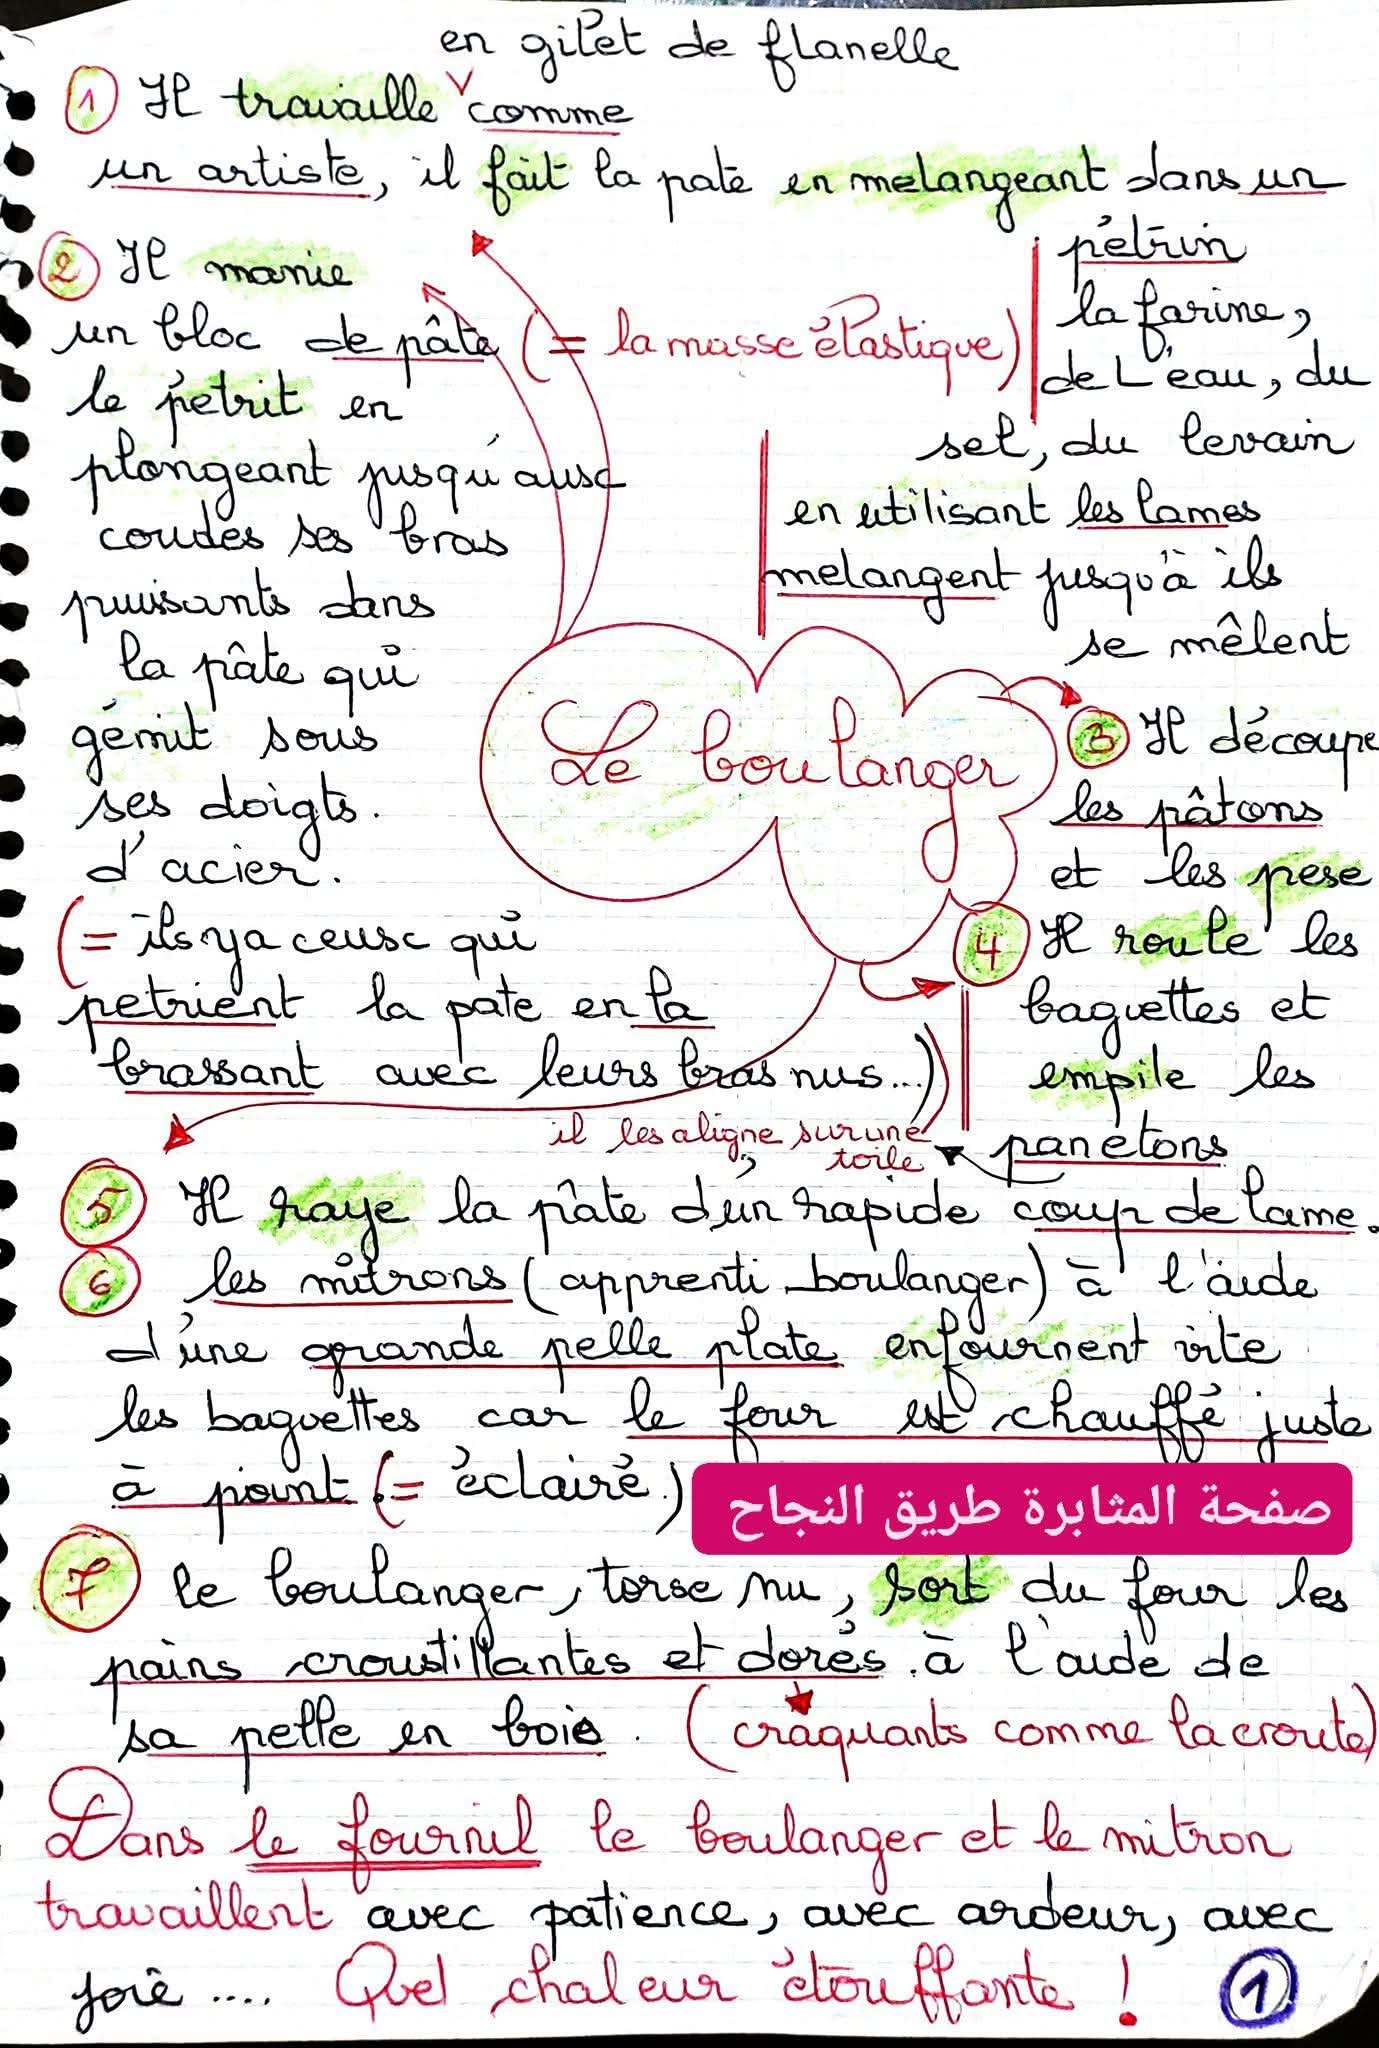 en gilet de flanelle
① Il travaille ˅ comme
un artiste, il fait la pate en melangeant dans un
pétrin
la farine,
de L'eau, du
sel, du levain
en utilisant les lames
melangent jusqu'à ils
se mêlent
② Il manie
un bloc de pâte (= la masse élastique)
le pétrit en
plongeant jusqu'aux
coudes ses bras
puissants dans
la pâte qui
gémit sous
ses doigts.
d'acier.
(= ils ya ceux qui
petrient la pate en la
brassant avec leurs bras nus...)
Le boulanger
③ Il découpe
les pâtons
et les pese
④ Il roule les
baguettes et
empile les
panetons
il les aligne sur une
toile
⑤ Il raye la pâte d'un rapide coup de lame.
⑥ les mitrons (apprenti boulanger) à l'aide
d'une grande pelle plate enfournent vite
les baguettes car le four est chauffé juste
à point (= éclairé.)
صفحة المثابرة طريق النجاح
⑦ le boulanger, torse nu, sort du four les
pains croustillantes et dorés. à l'aide de
sa pelle en bois. (craquants comme la croute)
Dans le fournil le boulanger et le mitron
travaillent avec patience, avec ardeur, avec
joie .... Quel chaleur étouffante !
①